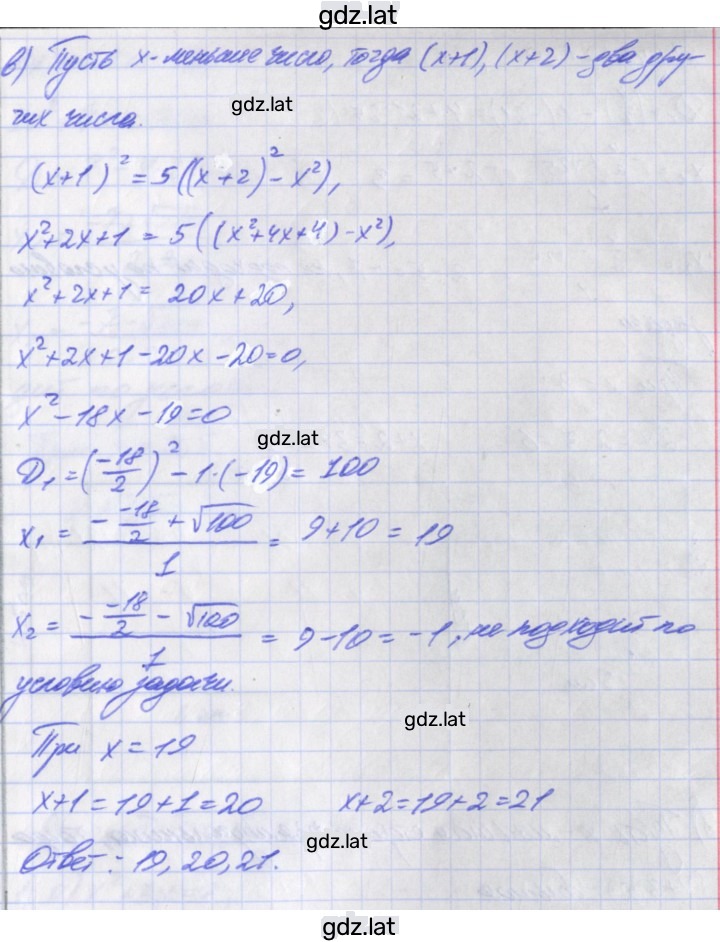 gdz.lat
в) Пусть x - меньшее число, тогда (x+1), (x+2) - два дру-
gdz.lat
гих числа.
(x+1)² = 5((x+2)² - x²),
x²+2x+1 = 5((x²+4x+4) - x²),
x²+2x+1 = 20x+20,
x²+2x+1-20x-20=0,
x²-18x-19=0
gdz.lat
D₁ = (-18/2)² - 1·(-19) = 100
x₁ = (- -18/2 + √100)/1 = 9+10 = 19
x₂ = (- -18/2 - √100)/1 = 9-10 = -1, не подходит по
условию задачи.
gdz.lat
При x = 19
x+1=19+1=20 x+2=19+2=21
gdz.lat
Ответ: 19, 20, 21.
gdz.lat